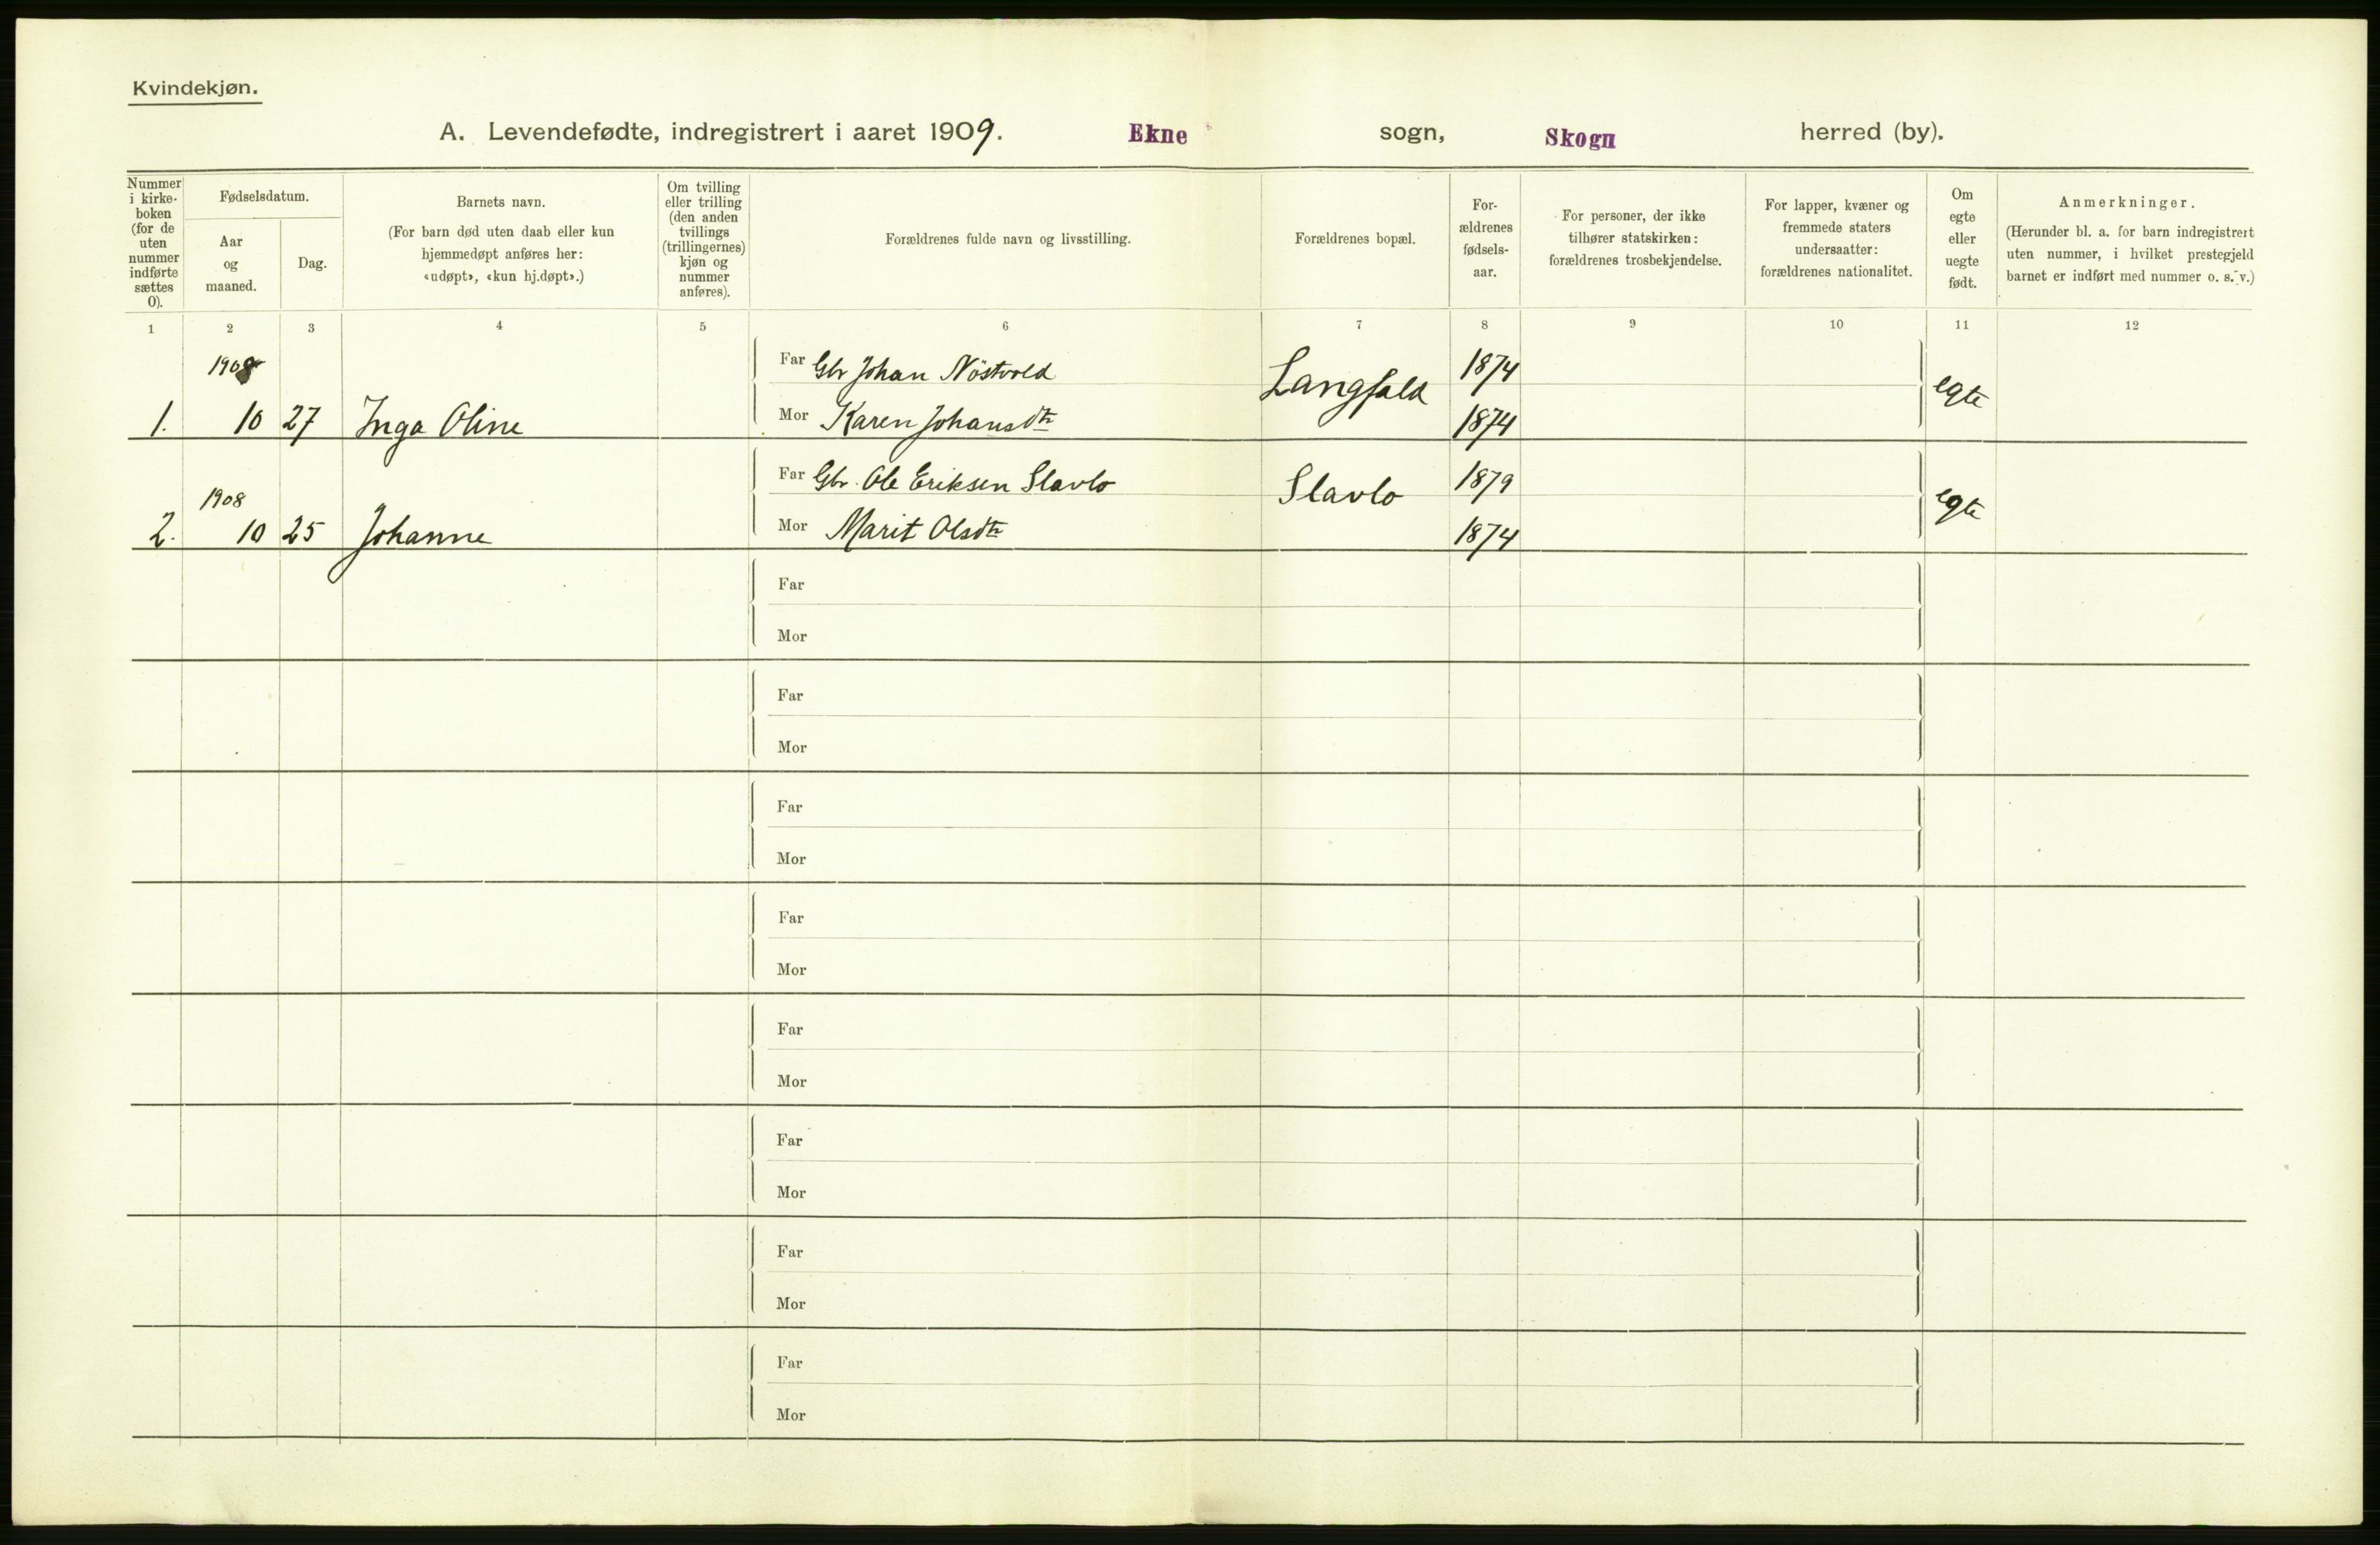 Kvindekjøn.
A. Levendefødte, indregistrert i aaret 1909. Ekne sogn, Skogn herred (by).
Nummer i kirke-boken (for de uten nummer indførte sættes 0).
Fødselsdatum.
Aar og maaned.
Dag.
Barnets navn.
(For barn død uten daab eller kun
hjemmedøpt anføres her:
«udøpt», «kun hj.døpt».)
Om tvilling
eller trilling
(den anden
tvillings
(trillingernes)
kjøn og
nummer
anføres).
Forældrenes fulde navn og livsstilling.
Forældrenes bopæl.
For-
ældrenes
fødsels-
aar.
For personer, der ikke
tilhører statskirken:
forældrenes trosbekjendelse.
For lapper, kvæner og
fremmede staters
undersaatter:
forældrenes nationalitet.
Om
egte
eller
uegte
født.
Anmerkninger.
(Herunder bl. a. for barn indregistrert
uten nummer, i hvilket prestegjeld
barnet er indført med nummer o. s. v.)
1 2 3 4 5 6 7 8 9 10 11 12
1908 Far Gbr Johan Nöstvold Langfald 1874 egte
1. 10 27 Inga Oline Mor Karen Johansdtr 1874
1908 Far Gbr. Ole Eriksen Slavlo Slavlo 1879 egte
2. 10 25 Johanne Mor Marit Olsdtr 1874
Far
Mor
Far
Mor
Far
Mor
Far
Mor
Far
Mor
Far
Mor
Far
Mor
Far
Mor